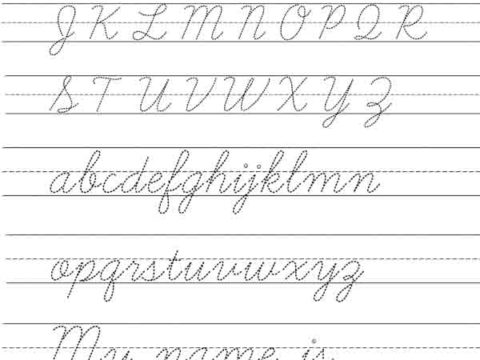 J K L M N O P Q R
S T U V W X Y Z
abcdefghijklmn
opqrstuvwxyz
My name is